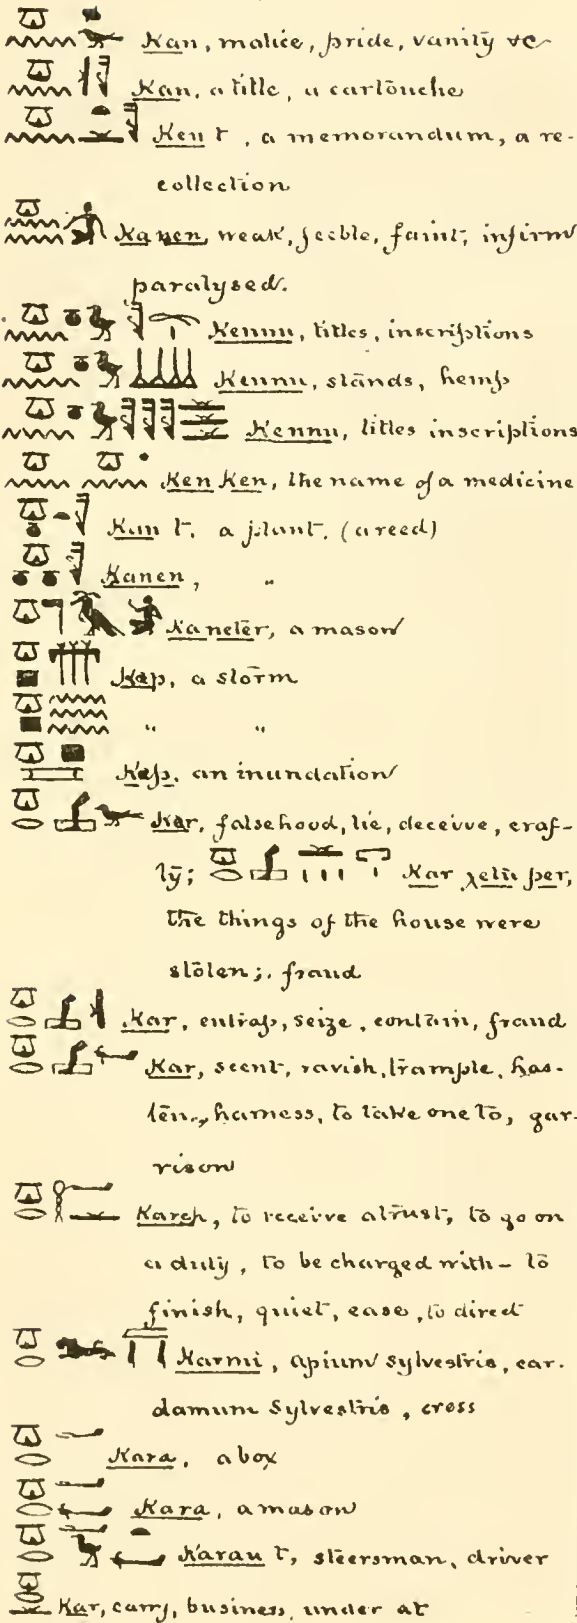 Kan, malice, pride, vanity &c
Kan, a title, a cartouche
Ken t, a memorandum, a re-
collection
Kanen, weak, feeble, faint, infirm
paralysed.
Kennu, titles, inscriptions
Kennu, stands, hemp
Kennu, titles inscriptions
Ken Ken, the name of a medicine
Kan t, a plant, (a reed)
Kanen, "
Kaneter, a mason
Kap, a storm
" "
Kap, an inundation
Kar, falsehood, lie, deceive, craf-
ty; Kar χetu per,
the things of the house were
stolen; fraud
Kar, entrap, seize, contain, fraud
Kar, scent, ravish, trample, has-
ten, harness, to take one to, gar-
rison
Kareh, to receive a trust, to go on
a duty, to be charged with – to
finish, quiet, ease, to direct
Karmi, apium sylvestris, car-
damum Sylvestris, cress
Kara, a box
Kara, a mason
Karau t, steersman, driver
Kar, carry, business, under at